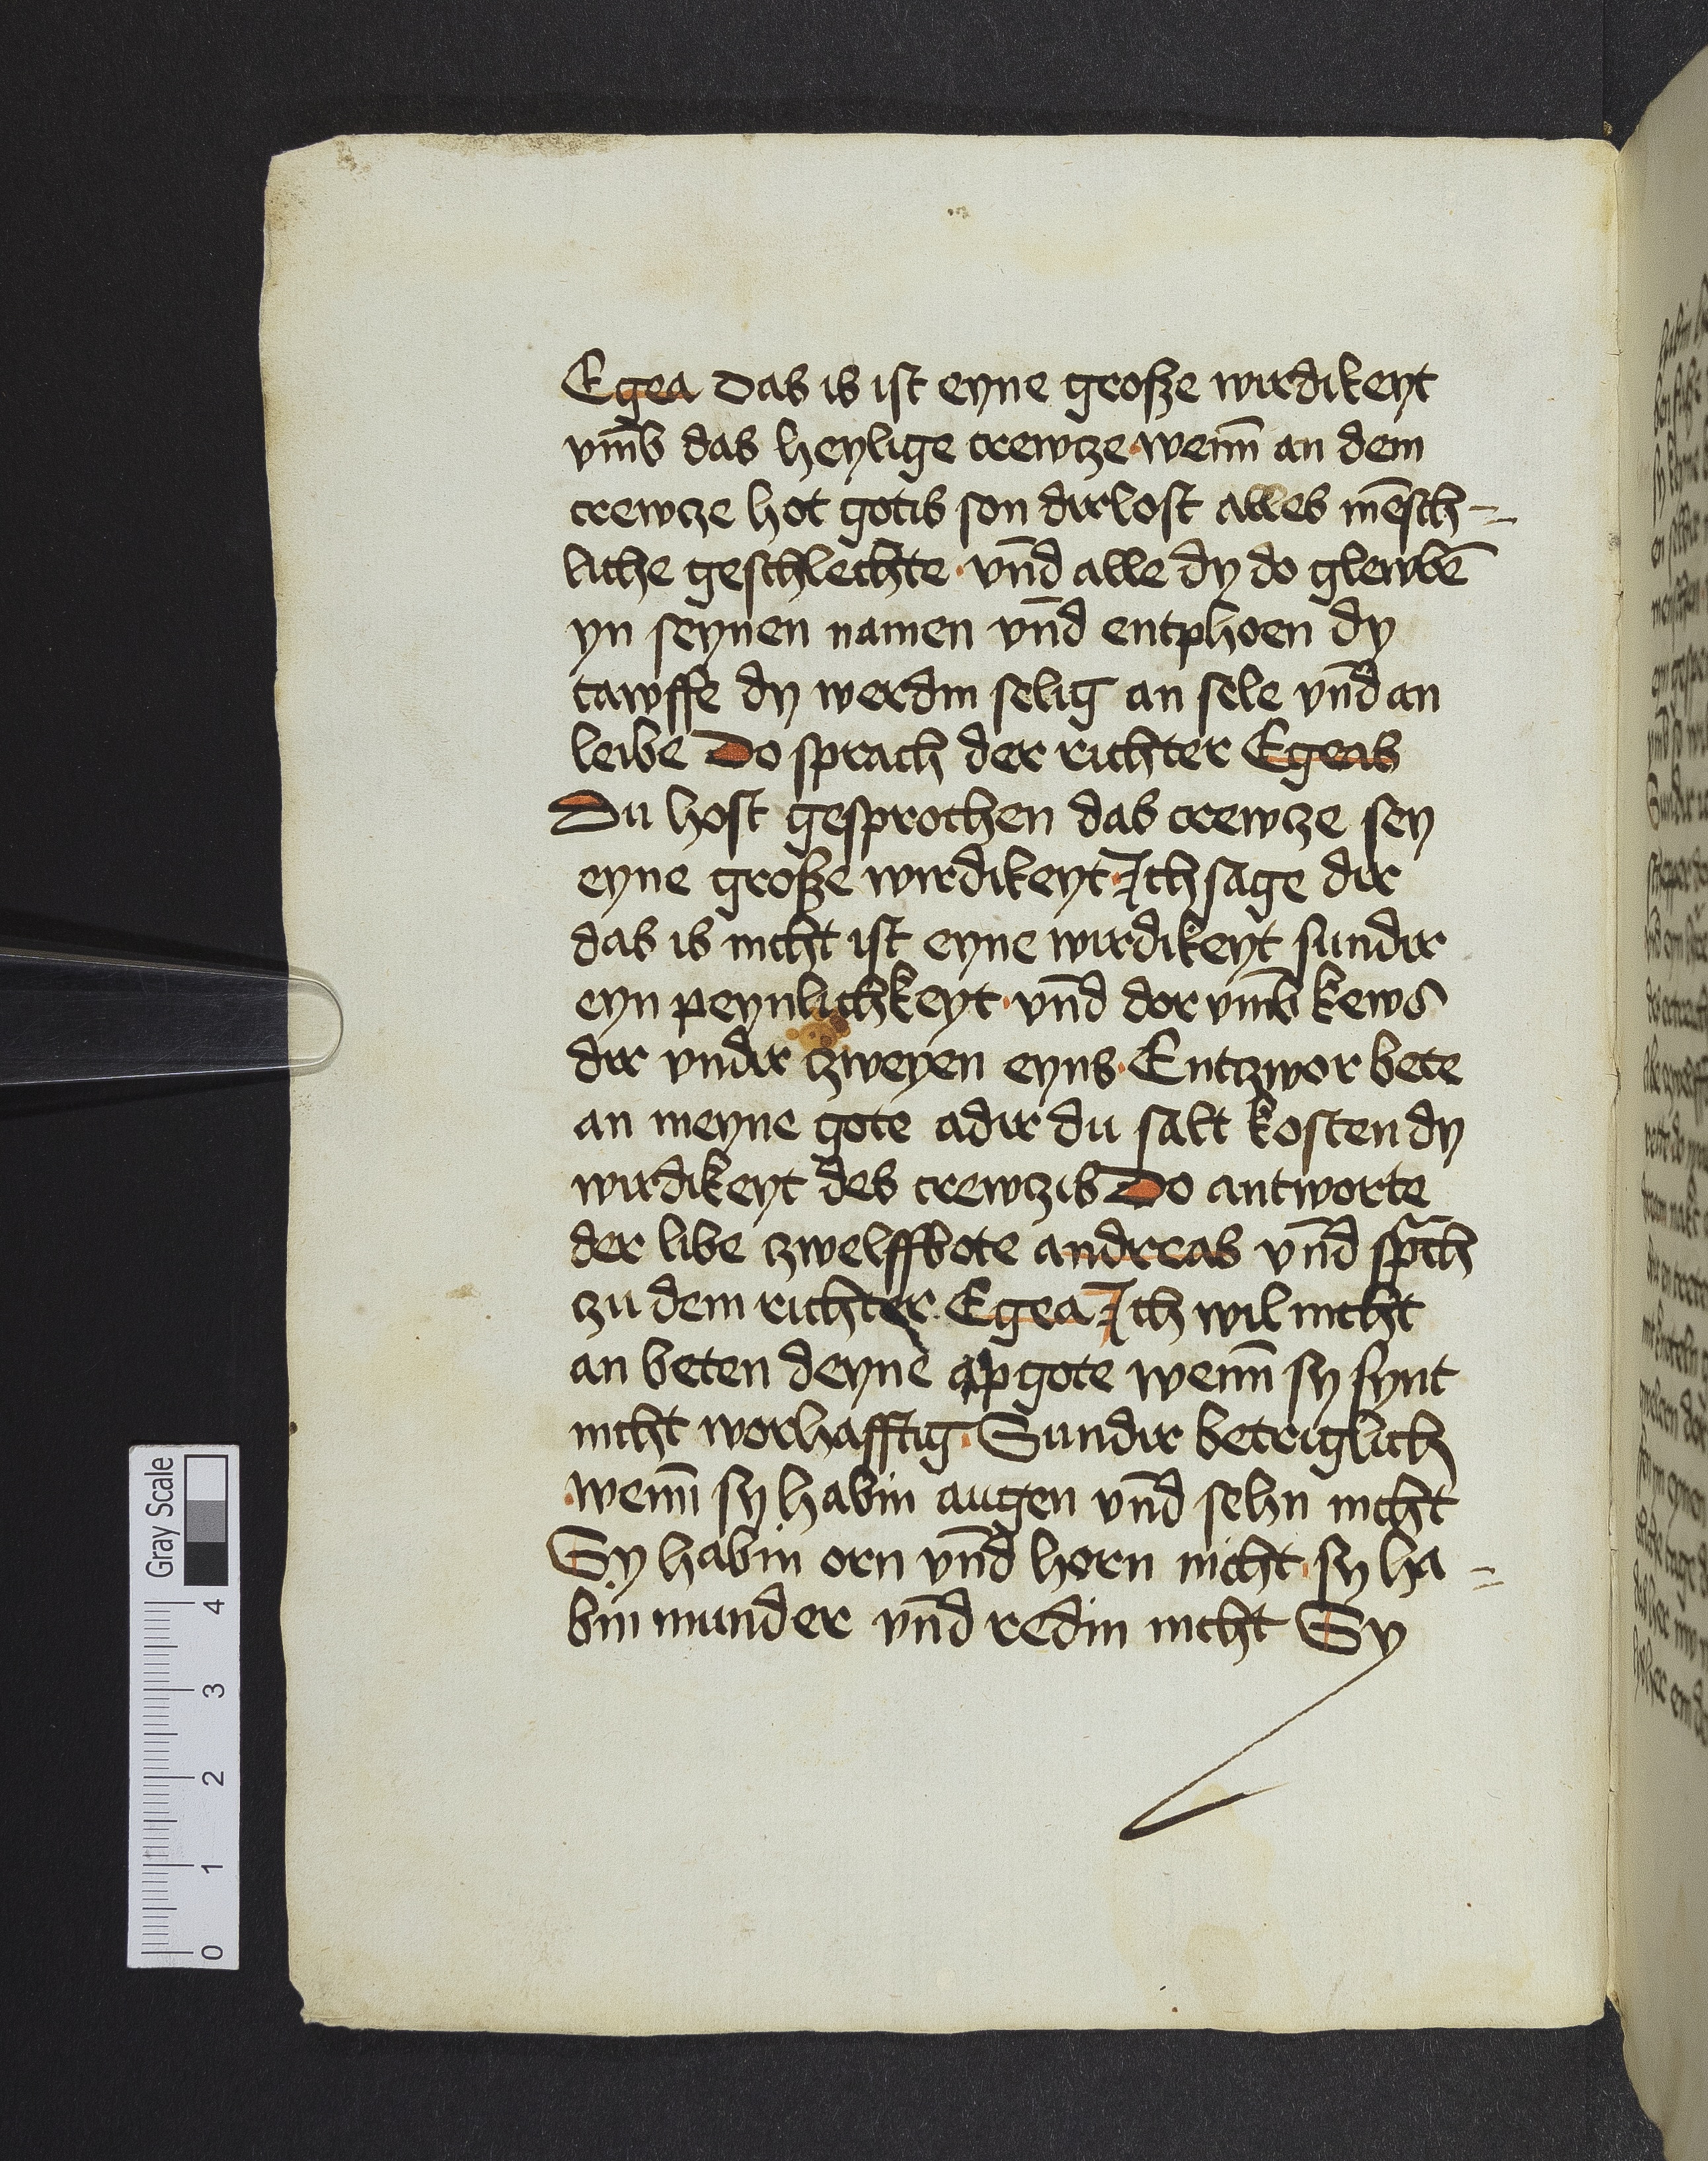 Egea das is ist eyne große wirdikeyt
vm̄b das heylige crewcze · wenn̄ an dem
crewcze hot gotis son dirlost alles mēsch=
liche geschlechte · vn̄d alle dy do glewbē
yn seynen namen vn̄d entphoen dy
tawffe dy werdin selig an sele vn̄d an
leibe Do sprach der richter Egeas
Du host gesprochen das crewcze sey
eyne große wirdikeyt · Ich sage dir
das is nicht ist eyne wirdikeyt sundir
eyn peynlichkeyt · vn̄d dor vm̄b kews
dir vndir czweyen eyns · Entzwor bete
an meyne gote adir du salt kosten dy
wirdikeyt des crewczis Do antworte
der libe czwelffbote andreas vn̄d sp̄ch
czu dem richter Egea Ich wil nicht
an beten deyne apgote wenn̄ sy synt
nicht worhafftig · Sundir betriglich
· wenn̄ sy habin augen vn̄d sehn nicht
Sy habin orn vn̄d horn nicht · sy ha=
bin munder vn̄d redin nicht Sy
Gray Scale
4
3
2
1
0